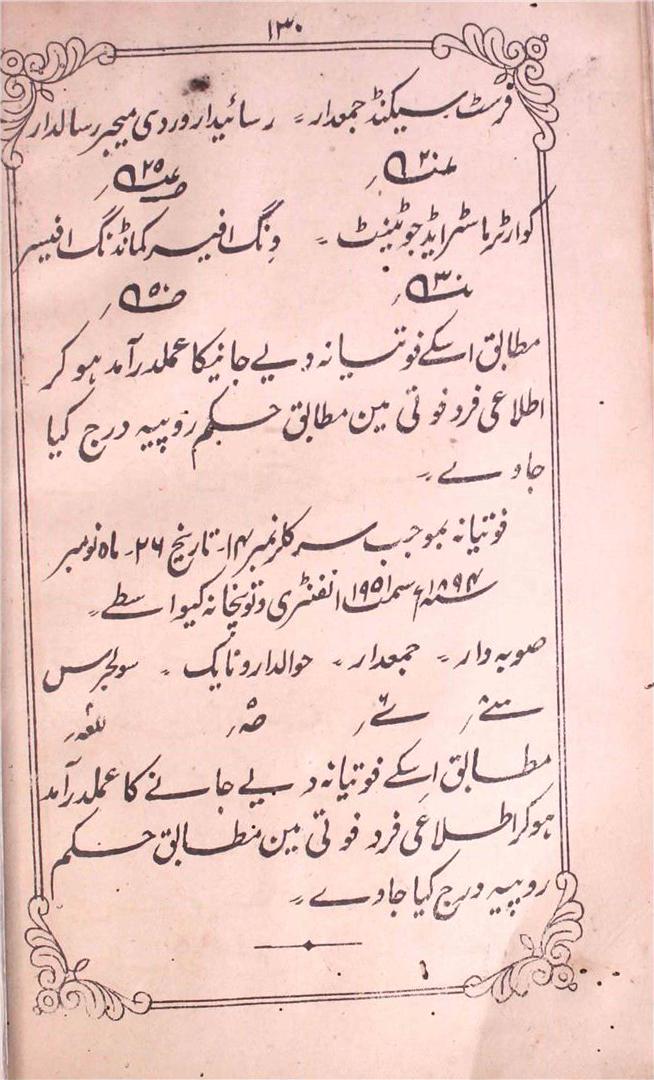 ۱۳۰
فرسٹ سیکنڈ جمعدار ۔ رسائیدار وردی میجر رسالدار
۲۰ ۲۵
کوارٹر ماسٹر ایڈجوٹینٹ ۔ ونگ افیسر کمانڈنگ افیسر
۳۰ ۵۰
مطابق اسکے فوتیانہ دیے جانیکا عملدرآمد ہو کر
اطلاعی فرد فوتی مین مطابق حکم روپیہ درج کیا
جاوے ۔
فوتیانہ بموجب سرکلر نمبر ۱۴۔ تاریخ ۲۶۔ ماہ نومبر
سنہ ۱۸۹۴ء سمت ۱۹۵۱ انفنٹری و توپخانہ کیواسطے ۔
صوبہ دار ۔ جمعدار ۔ حوالدار و نایک ۔ سولجرس
۸ ۶
مطابق اِسکے فوتیانہ دیے جانے کا عملدرآمد
ہوکر اطلاعی فرد فوتی مین مطابق حکم
روپیہ درج کیا جاوے ۔